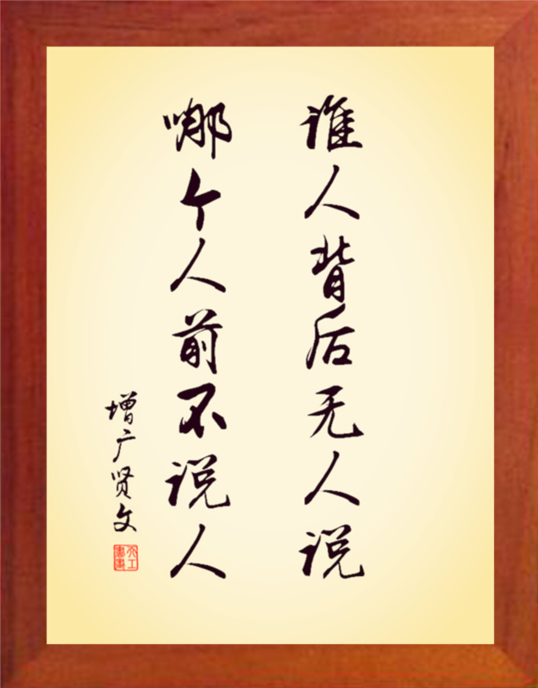 谁人背后无人说
哪个人前不说人
增广贤文